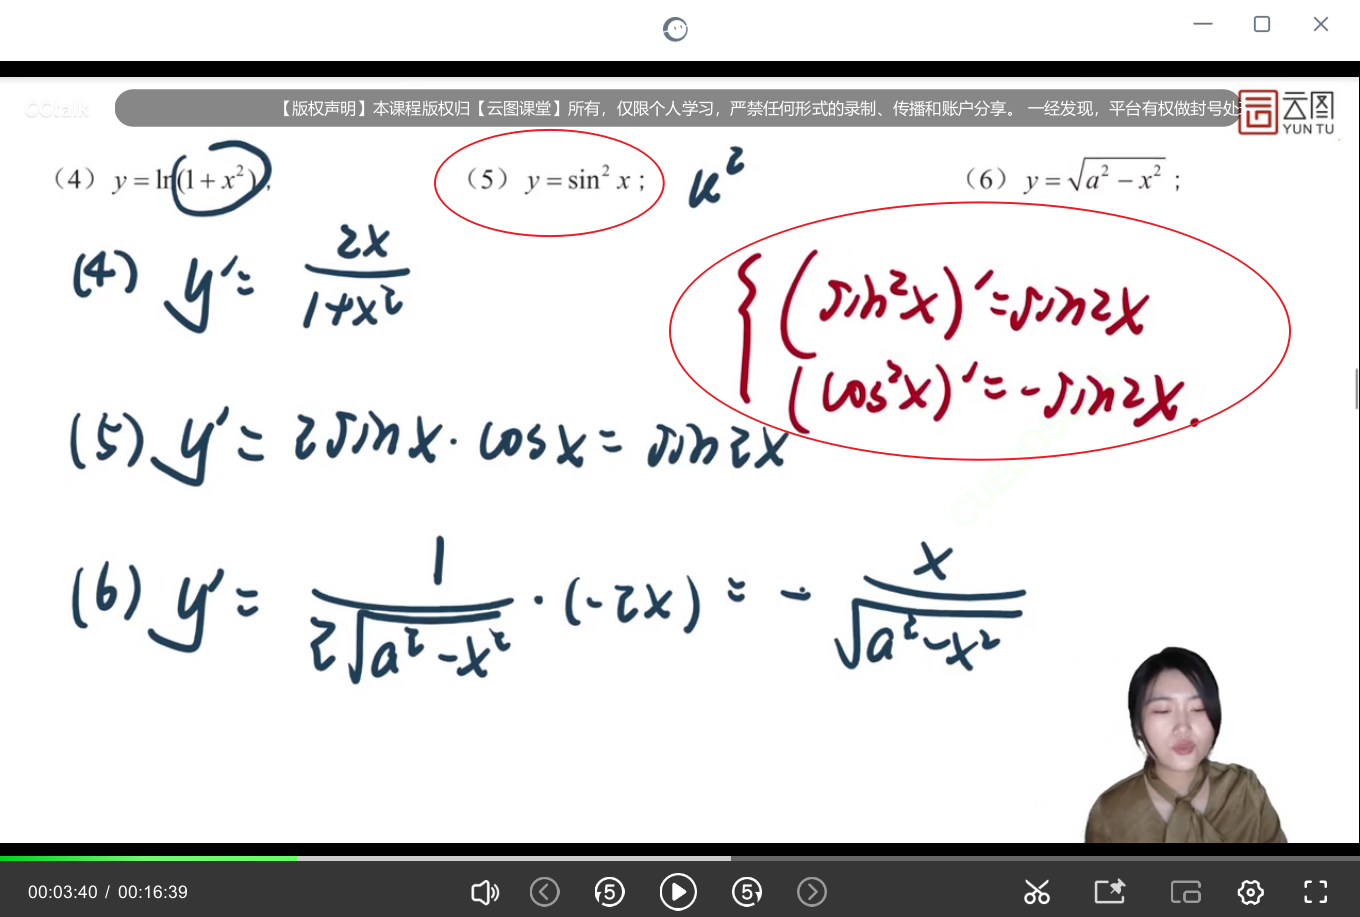 CCtalk
【版权声明】本课程版权归【云图课堂】所有，仅限个人学习，严禁任何形式的录制、传播和账户分享。 一经发现，平台有权做封号处
云图
YUN TU
（4） y = ln(1 + x²)；
（5） y = sin² x；
u²
（6） y = √(a² − x²)；
(4) y' = 2x / (1+x²)
{ (sin²x)' = sin2x
(cos²x)' = -sin2x.
(5) y' = 2sinx · cosx = sin2x
(6) y' = 1 / (2√(a²-x²)) · (-2x) = - x / √(a²-x²)
00:03:40 / 00:16:39
5
5